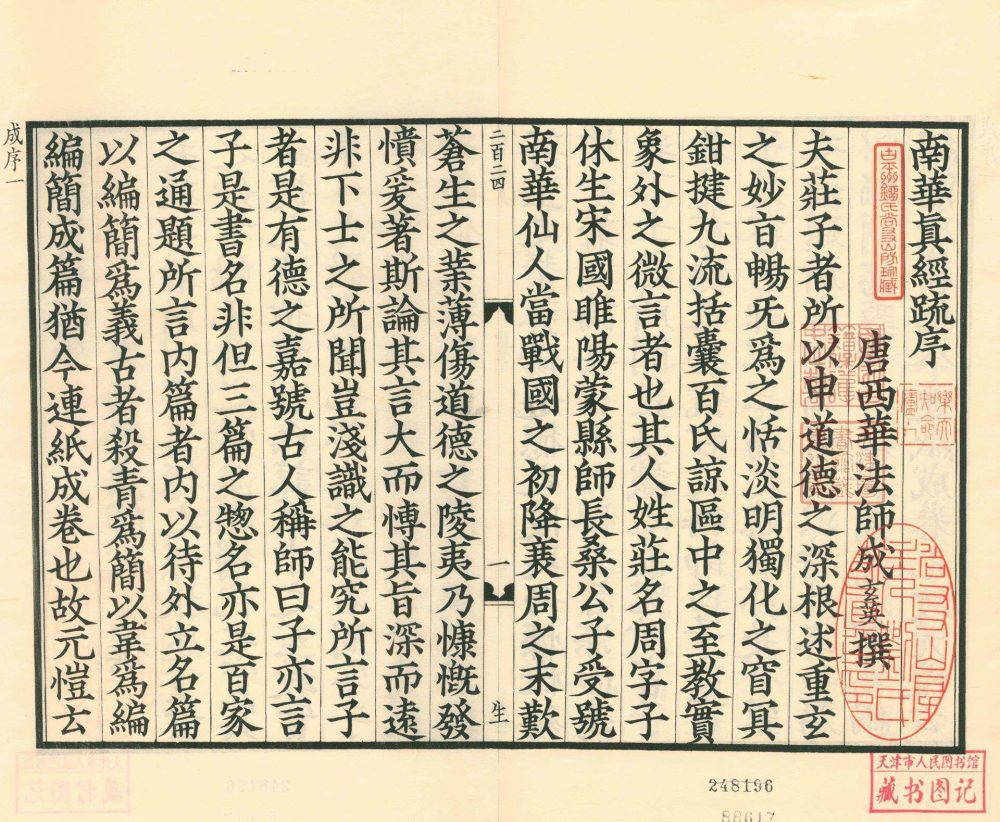 南華真經疏序
唐西華法師成玄英撰
夫莊子者所以申道德之深根述重玄
之妙㫖暢无爲之恬淡明獨化之窅冥
鉗揵九流括囊百氏諒區中之至教實
象外之微言者也其人姓莊名周字子
休生宋國睢陽蒙縣師長桑公子受號
南華仙人當戰國之初降衰周之末歎
二百二四
一
生
蒼生之業薄傷道德之陵夷乃慷慨發
憤爰著斯論其言大而博其旨深而遠
非下士之所聞豈淺識之能究所言子
者是有德之嘉號古人稱師曰子亦言
子是書名非但三篇之惣名亦是百家
之通題所言内篇者内以待外立名篇
以編簡爲義古者殺青爲簡以韋爲編
編簡成篇猶今連紙成卷也故元愷云
成序一
天津市人民图书馆
藏书图记
248196
88617